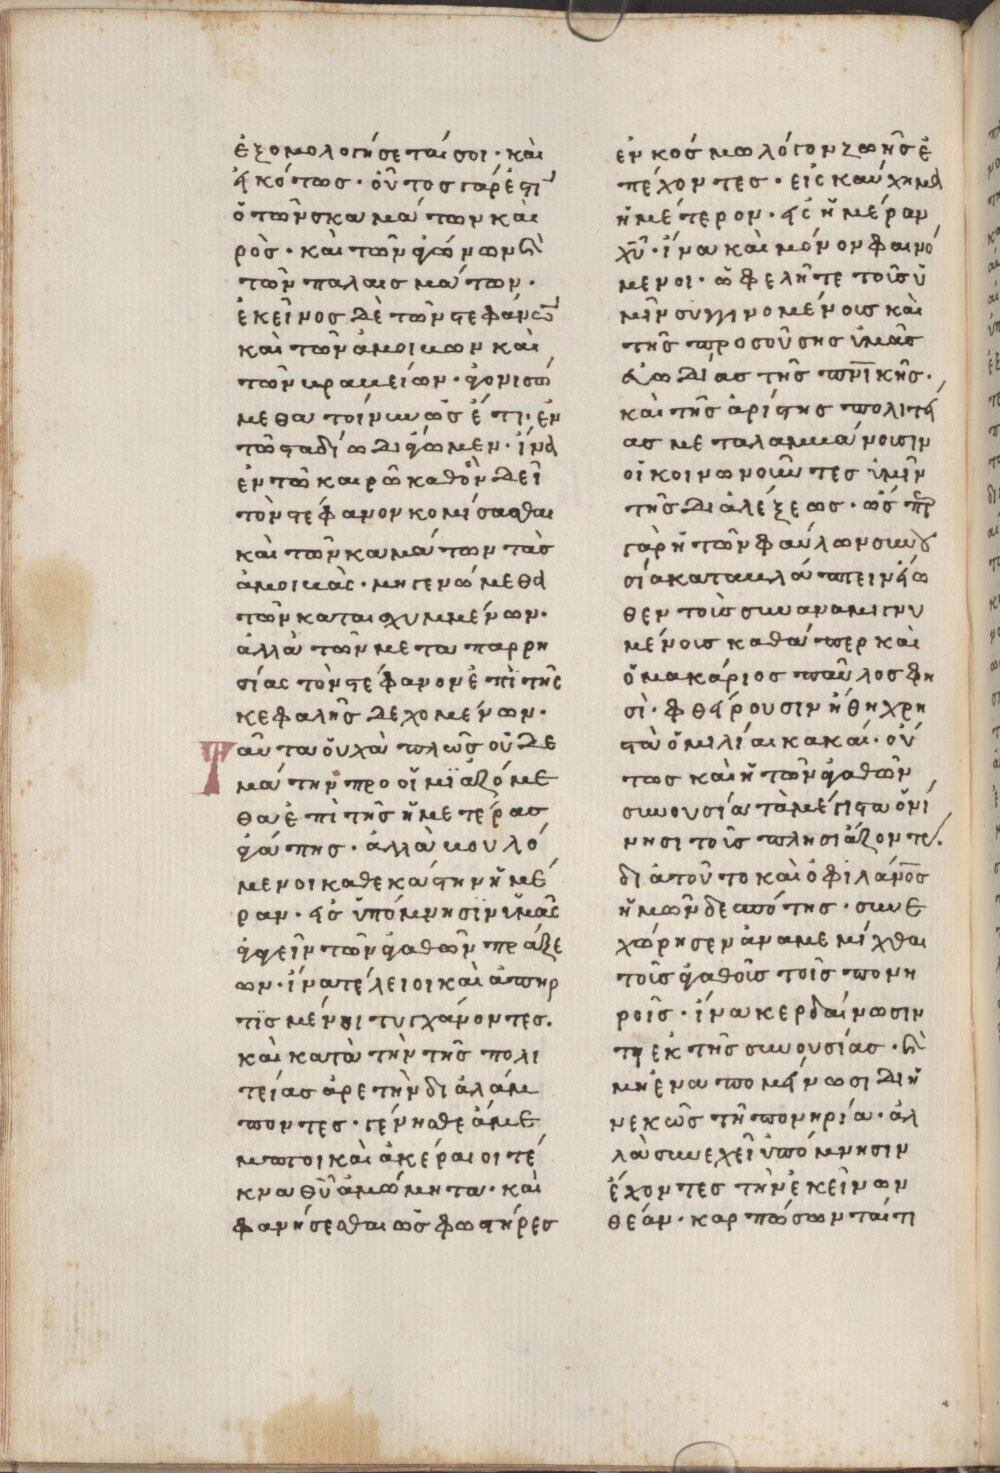 ἐξομολογήσεταί σοι· καὶ
εἰκότως· οὗτος γάρ ἐστιν
ὁ τῶν σκαμμάτων και
ρὸς· καὶ τῶν ἀγώνων καὶ
τῶν παλαισμάτων·
ἐκεῖνος δὲ τῶν στεφάνων
καὶ τῶν ἀμοιβῶν καὶ
τῶν βραβείων· ἀγονισώ
μεθα τοίνυν ὡς ἔτι ἐν
τῶ σταδίω διάγωμεν· ἵνα
ἐν τῶ καιρῶ καθ ὃν δεῖ
τὸν στέφανον κομίσασθαι
καὶ τῶν καμάτων τὰς
ἀμοιβὰς· μὴ γενώμεθα
τῶν καταισχυμμένων·
ἀλλὰ τῶν μετα παρρη
σίας τὸν στέφανον ἐπὶ τῆς
κεφαλῆς δεχομένων·
Ταῦτα οὐχ ἁπλῶς οὐδὲ
μάτην προοιμϊαζόμε
θα ἐπὶ τῆς ἡμετέρας
ἀγάπης· ἀλλὰ βουλό
μενοι καθεκάστην ἡμέ
ραν· εἰς ὑπόμνησϊν ὑμᾶς
ἄγειν τῶν ἀγαθῶν πράξε
ων· ἵνα τέλειοι καὶ ἀπηρ
τϊσμένοι τυγχάνοντες·
καὶ κατὰ τὴν τῆς πολι
τείας ἀρετὴν διαλάμ
ποντες· γένησθε ἄμε
μπτοι καὶ ἀκέραιοι τέ
κνα θῦ ἀμώμητα· καὶ
φανήσεσθαι ὡς φωστῆρες
ἐν κόσμω λόγον ζωῆς ἐ
πέχοντες· εἰς καύχημα
ἡμέτερον· εἰς ἡμέραν
χῦ· ἵνα καὶ μόνον φαινό
μενοι· ὠφελῆτε τοῖς ὑ
μῖν συγγινομένοις καὶ
τῆς προσούσης ὑμᾶς
εὐωδίας τῆς πνικῆς·
καὶ τῆς ἀρίστης πολιτεί
ας μεταλαμβάνοισιν
οἱ κοινωνοῦντες ὑμῖν
τῆς διαλέξεως· ὥσπερ
γὰρ ἡ τῶν φαύλων συνου
σία καταβλάπτειν εἴω
θεν τοὺς συναναμιγνυ
μένοις καθάπερ καὶ
ὁ μακάριος παῦλος φη
σὶ· φθείρουσιν ἤθη χρη
στὰ ὁμιλίαι κακαί· οὕ
τως καὶ ἡ τῶν ἀγαθῶν
συνουσία τὰ μέγιστα ὀνί
νησι τοῖς πλησιάζοντες·
διὰ τοῦτο καὶ ὁ φιλάνος
ἡμῶν δεσπότης· συνε
χώρησεν ἀναμεμίχθαι
τοῖς ἀγαθοῖς τοῖς πονη
ροῖς· ἵνα κερδαίνωσιν
τι ἐκ τῆς συνουσίας· καὶ
μὴ ἐναπομείνωσι διη
νεκῶς τῆ πονηρία· ἀλ
λὰ συνεχεῖ ὑπόμνησιν
ἔχοντες τὴν ἐκείνων
θέαν· καρπώσωνταί τι